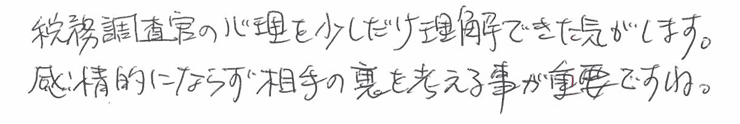 税務調査官の心理を少しだけ理解できた気がします。
感情的にならず相手の裏を考える事が重要ですね。